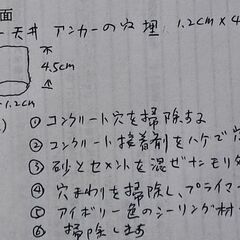 面
天井 アンカーの穴埋 1.2cm×4
4.5cm
1.2cm
① コンクリート穴を掃除する
② コンクリート接着剤をハケで
③ 砂とセメントを混ぜナモリタ
④ 穴まわりを掃除し、プライマー
⑤ アイボリー色のシーリング材
⑥ 掃除します